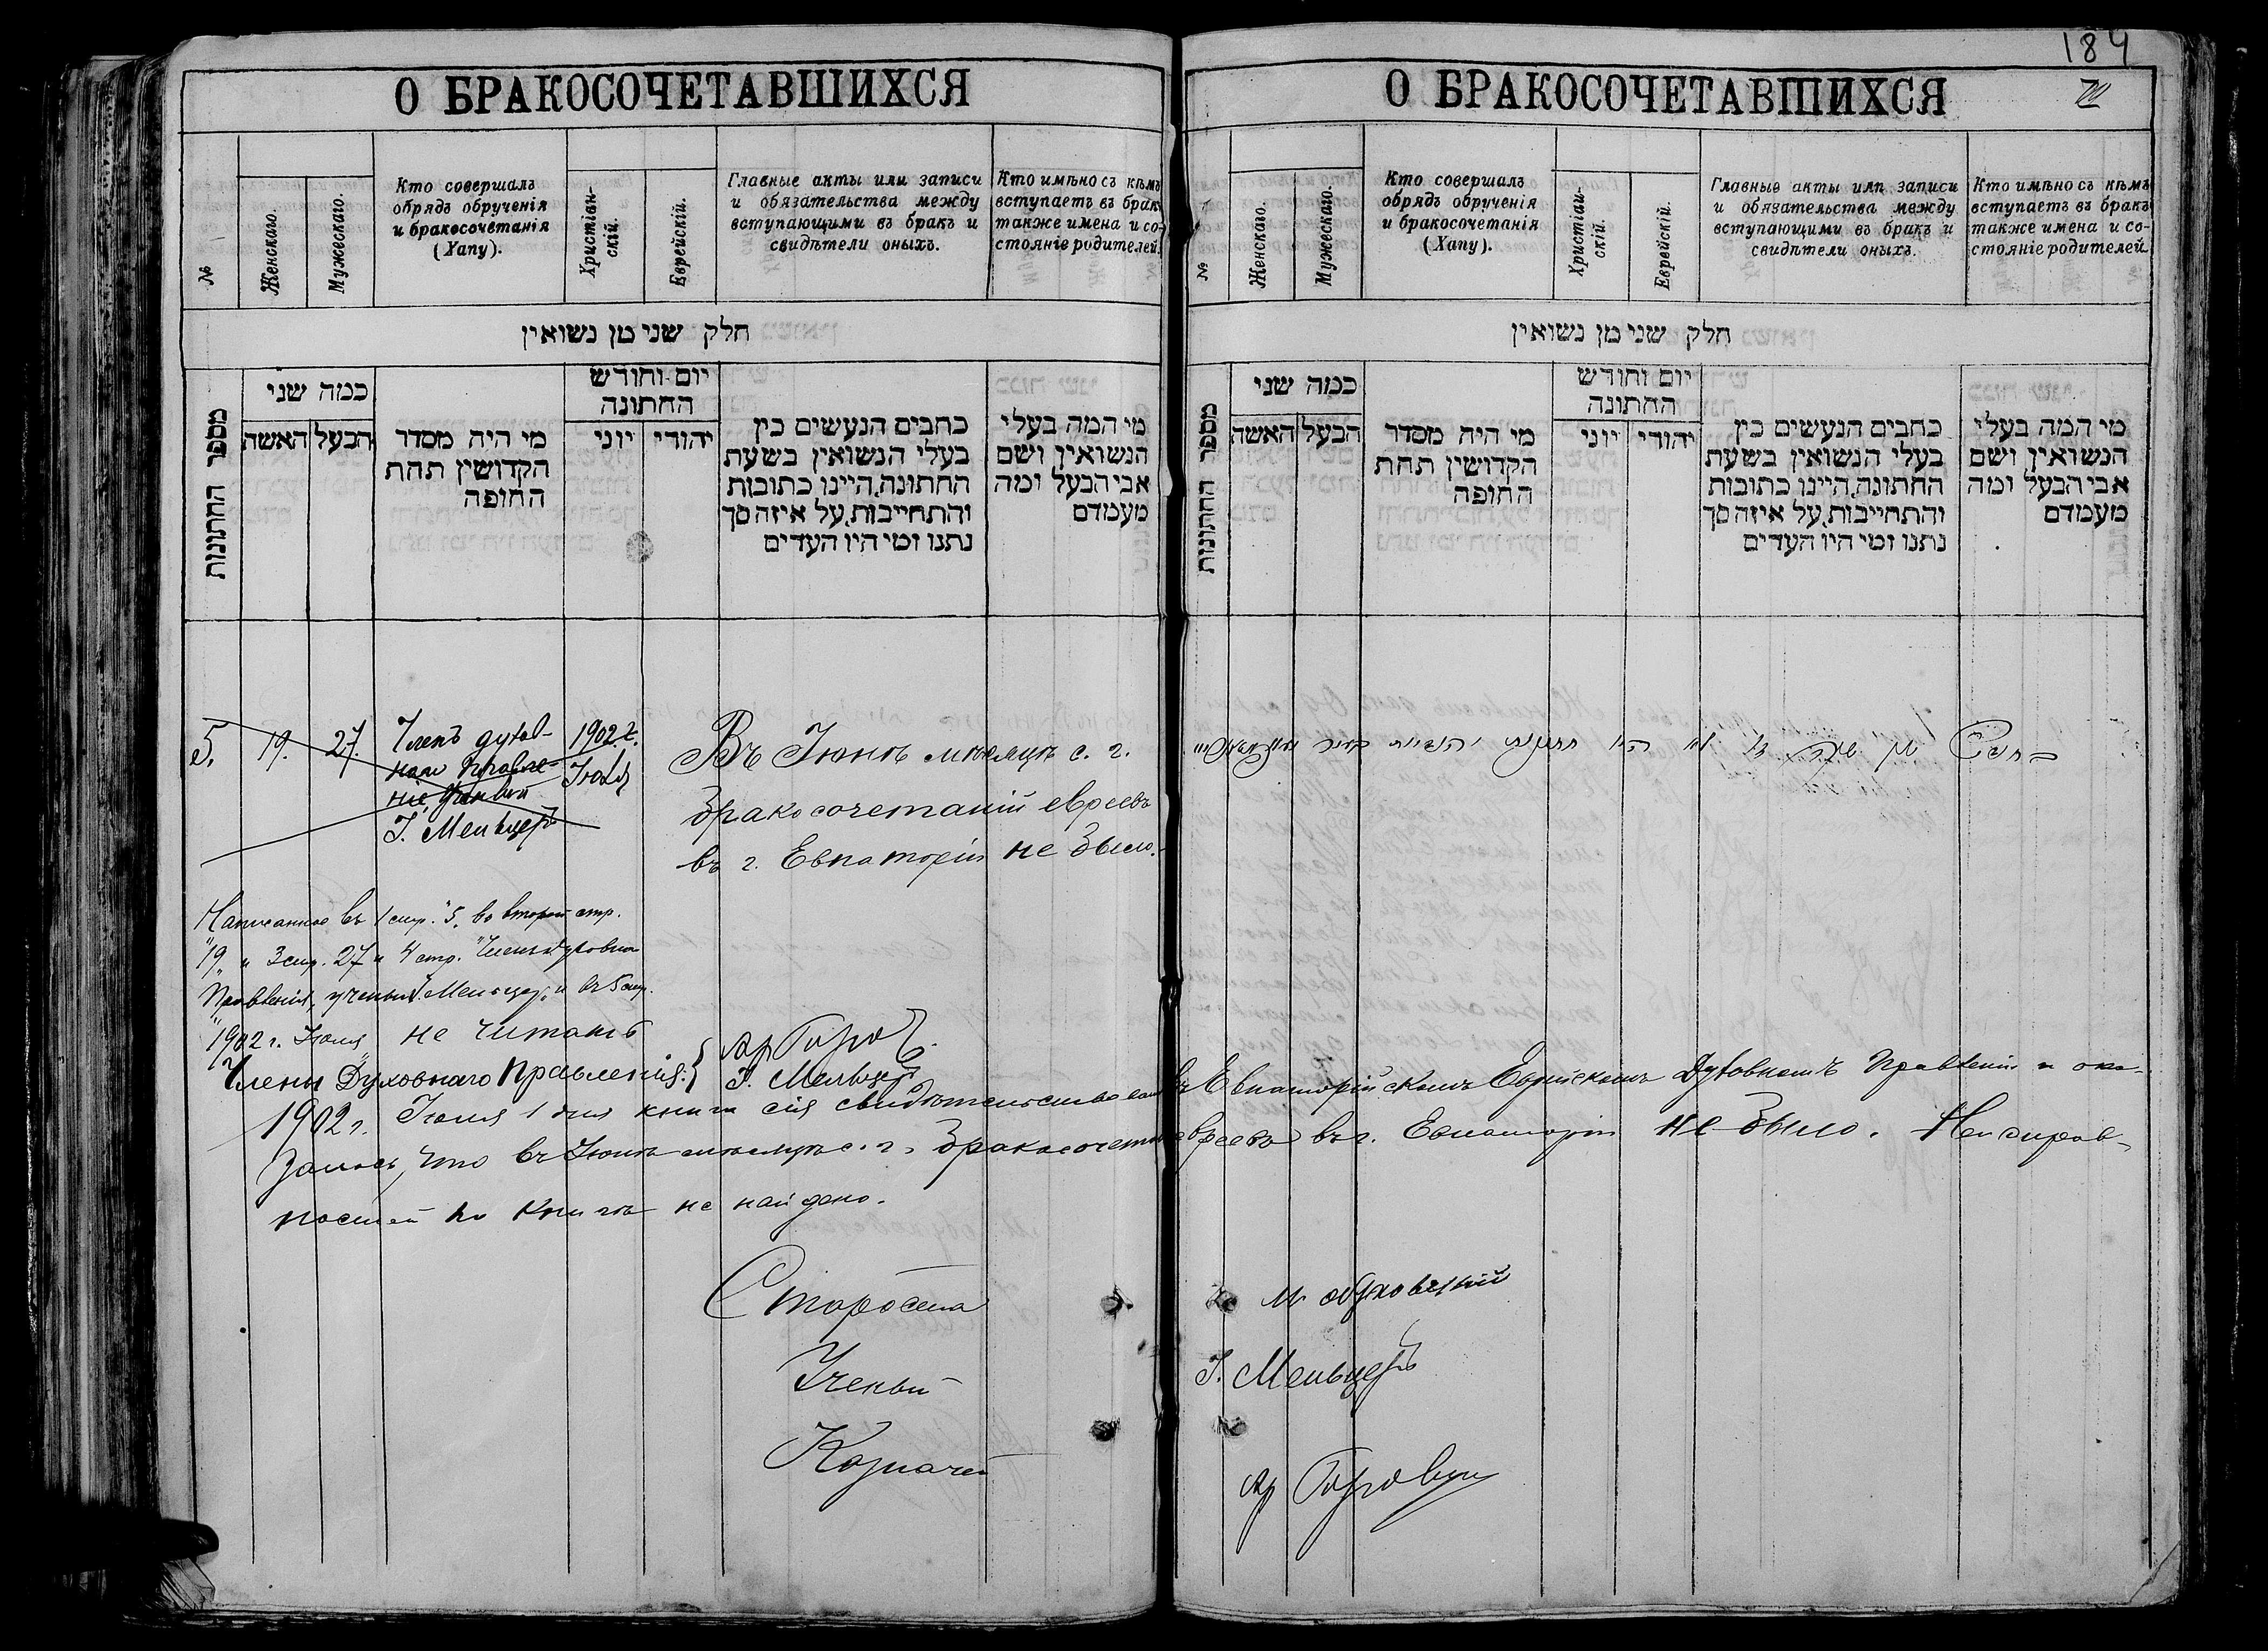 О БРАКОСОЧЕТАВШИХСЯ
№
Женскаго.
Мужескаго.
Кто совершалъ
обрядъ обрученія
и бракосочетанія
(Хапу).
Христіан-
скій.
Еврейскій.
Главные акты или записи
и обязательства между
вступающими въ бракъ и
свидѣтели оныхъ.
Кто имѣно съ кѣмъ
вступаетъ въ бракъ
также имена и со-
стояніе родителей.
חלק שני מן נשואין
מספר החתונות
כמה שני
האשה
הבעל
מי היה מסדר
הקדושין תחת
החופה
יום וחודש
החתונה
יוני
יהודי
כתבים הנעשים בין
בעלי הנשואין בשעת
החתונה, היינו כתובות
והתחייבות, על איזה סך
נתנו ומי היו העדים
מי המה בעלי
הנשואין ושם
אבי הבעל ומה
מעמדם
5.
19.
27.
Членъ духов-
наго Правле-
нія, Ученый
І. Мельцеръ
1902 г.
Іюля
Въ Іюнѣ мѣсяцѣ с. г.
бракосочетаній евреевъ
въ г. Евпаторіи не было.
Написанное въ 1 стр. "5", во второй стр.
"19" и 3 стр. 27 и 4 стр. "Членъ духовна
Правленія, ученый І. Мельцеръ" и въ 5 стр.
"1902 г. Іюля" не читать
Члены Духовнаго Правленія:
І. Мельцеръ
1902 г. Іюля 1 дня книга сія свидѣтельствована
залось, что въ Іюнѣ мѣсяцѣ с. г. бракосочетаній
ностей по книгѣ не найдено.
Староста
Ученый
Казначей
184
О БРАКОСОЧЕТАВШИХСЯ
№
Женскаго.
Мужескаго.
Кто совершалъ
обрядъ обрученія
и бракосочетанія
(Хапу).
Христіан-
скій.
Еврейскій.
Главные акты или записи
и обязательства между
вступающими въ бракъ и
свидѣтели оныхъ.
Кто имѣно съ кѣмъ
вступаетъ въ бракъ
также имена и со-
стояніе родителей.
חלק שני מן נשואין
מספר החתונות
כמה שני
האשה
הבעל
מי היה מסדר
הקדושין תחת
החופה
יום וחודש
החתונה
יוני
יהודי
כתבים הנעשים בין
בעלי הנשואין בשעת
החתונה, היינו כתובות
והתחייבות, על איזה סך
נתנו ומי היו העדים
מי המה בעלי
הנשואין ושם
אבי הבעל ומה
מעמדם
въ Евпаторійскомъ Еврейскомъ Духовномъ Правленіи и ока-
евреевъ въ г. Евпаторіи не было. Неисправ-
І. Мельцеръ